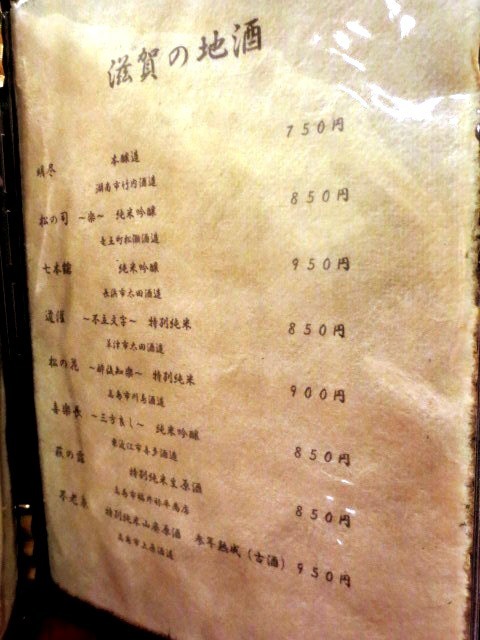 滋賀の地酒
本醸造 750円
湖南市竹内酒造
松の司 ～楽～ 純米吟醸 850円
竜王町松瀬酒造
七本鎗 純米吟醸 950円
長浜市太田酒造
道灌 ～不立文字～ 特別純米 850円
草津市太田酒造
松の花 ～酔後知楽～ 特別純米 900円
高島市川島酒造
喜楽長 ～三方良し～ 純米吟醸 850円
東近江市喜多酒造
萩の露 特別純米生原酒 850円
高島市福井弥平商店
不老泉 特別純米山廃原酒 参年熟成（古酒） 950円
高島市上原酒造